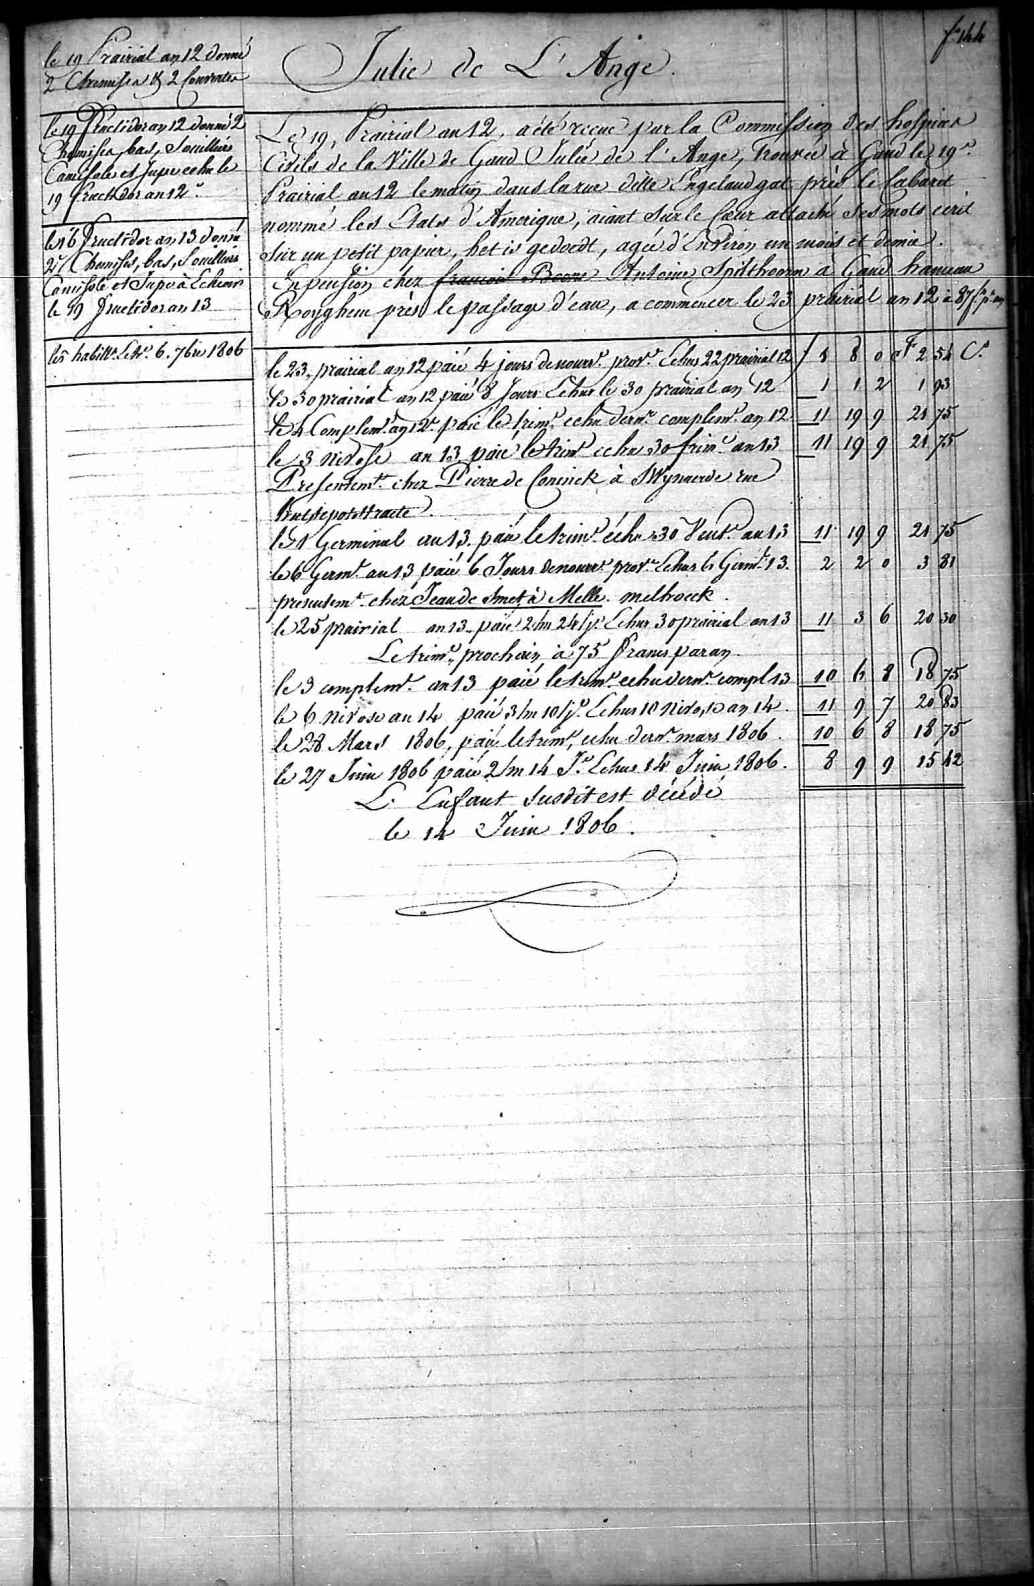 fo 144
le 19 Prairial an 12 donné
2 Chemises & 2 Couvertes
le 19 Fructidor an 12 donné 2
Chemises, bas, Souilliers
Camisole et Jupe echu le
19 Fructidor an 12e
le 16 Fructidor an 13 donné
2 Chemises, bas, Souilliers
Camisole et Jupe à Echeoir
le 19 Fructidor an 13
habillt 6. 7bre 1806
Julie de L'Ange.
Le 19, Prairial an 12, a été réçue par la Commission des hospices
Civils de la Ville de Gand Julie de l'Ange, trouvée à Gand le 19e
Prairial an 12 le matin dans la rue ditte Engelandgat près le Cabaret
nommé les Etats d'Amerique, aiant sur le Cœur attaché ses mots ecrit
sur un petit papier, het is gedoedt, agée d'Environ un mois et demie.
En pension chez francois Boone Antoine Spilthoorn à Gand hameau
Royghem près le passage d'eau, a commencer le 23 prairial an 12 à 87 f. p. an
le 23, prairial an 12 paié 4 jours de nourre. provre. Echus 22 prairial 12 / 1 8 0 F 2 54 Cs
le 30 prairial an 12 paié 8 Jours Echus le 30 prairial an 12 1 1 2 1 93
le 4 Complemt. an 12e paié le trimre. echu derne. complemt. an 12 11 19 9 21 75
le 3 nivose an 13 paié le trimre echu 30 frimre. an 13 11 19 9 21,75
Presentemt. chez Pierre de Coninck à Wynaerde rue

le 1 Germinal an 13 paié le trimre. échu 30 Ventse. an 13 11 19 9 21 75
le 6 Germl. an 13 paié 6 Jours de nourre. provre. Echus 6 Germl. 13. 2 2 0 3 81
presentemt. chez Jean de Smet à Melle. melhoeck.
le 25 prairial an 13 paié 2/m 24/js Echus 30 prairial an 13 11 3 6 20 30
Le trimre. prochain à 75 francs par an.
le 3 complemt. an 13 paié le trimre. echu derne. compl 13 10 6 8 18 75
le 6 nivose an 14 paié 3/m 10/js. Echus 10 nivose an 14. 11 9 7 20 83
le 28 Mars 1806, paié le trimre, echu derne. mars 1806. 10 6 8 18 75
le 27 Juin 1806 paié 2/m 14 Js Echus 14 Juin 1806. 8 9 9 15 42
L'Enfant susdit est décédé
le 14 Juin 1806.